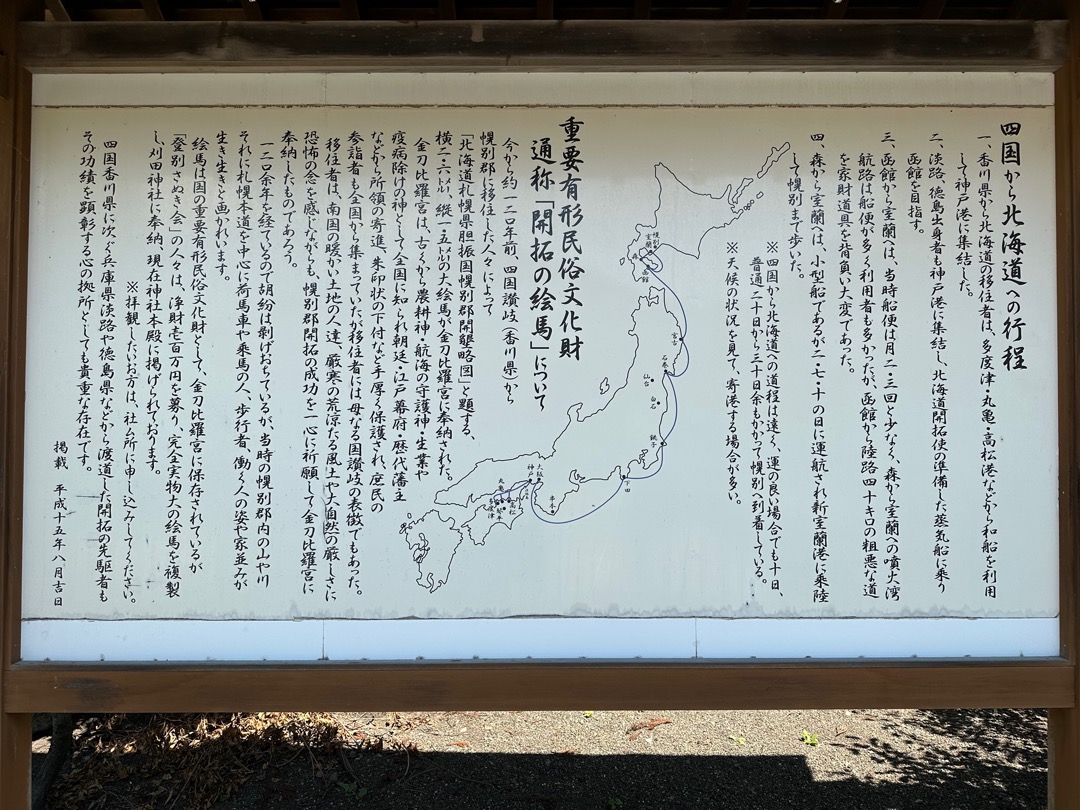 四国から北海道への行程
一、香川県から北海道の移住者は、多度津・丸亀・高松港などから和船を利用
して神戸港に集結した。
二、淡路、徳島出身者も神戸港に集結し、北海道開拓使の準備した蒸気船に乗り
函館を目指す。
三、函館から室蘭へは、当時船便は月二・三回と少なく、森から室蘭への噴火湾
航路は船便が多く利用者も多かったが、函館から陸路四十キロの粗悪な道
を家財道具を背負い大変であった。
四、森から室蘭へは、小型船であるが二・七・十の日に運航され新室蘭港に乗陸
して幌別まで歩いた。
※四国から北海道への道程は遠く、運の良い場合でも十日、
普通二十日から三十日余もかかって幌別へ到着している。
※天候の状況を見て、寄港する場合が多い。
幌別
室蘭
森
函館
宮古
石巻
仙台
白石
銚子
下田
串本
大阪
神戸
丸亀
高松
多度津
重要有形民俗文化財
通称「開拓の絵馬」について
今から約一二〇年前、四国讃岐(香川県)から
幌別郡に移住した人々によって
「北海道札幌県胆振国幌別郡開墾略図」と題する、
横二・六㍍、縦一・五㍍の大絵馬が金刀比羅宮に奉納された。
金刀比羅宮は、古くから農耕神・航海の守護神・生業や
疫病除けの神として全国に知られ朝廷・江戸幕府・歴代藩主
などから所領の寄進、朱印状の下付など手厚く保護され、庶民の
参詣者も全国から集まっていたが移住者には母なる国讃岐の表徴でもあった。
移住者は、南国の暖かい土地の人達、厳寒の荒涼たる風土や大自然の厳しさに
恐怖の念を感じながらも、幌別郡開拓の成功を一心に祈願して金刀比羅宮に
奉納したものであろう。
一二〇余年を経ているので胡紛は剥げおちているが、当時の幌別郡内の山や川
それに札幌本道を中心に荷馬車や乗馬の人、歩行者、働く人の姿や家並みが
生き生きと画かれいます。
絵馬は国の重要有形民俗文化財として、金刀比羅宮に保存されているが
「登別さぬき会」の人々は、浄財壱百万円を募り、完全実物大の絵馬を複製
し刈田神社に奉納、現在神社本殿に掲げられております。
※拝観したいお方は、社ム所に申し込みしてください。
四国香川県に次ぐ兵庫県淡路や徳島県などから渡道した開拓の先駆者も
その功績を顕彰する心の拠所としても貴重な存在です。
掲載 平成十五年八月吉日